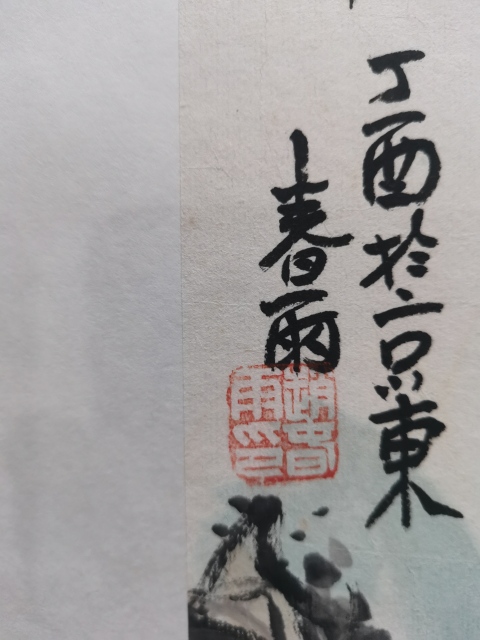 丁酉於京東
春雨
趙春雨印